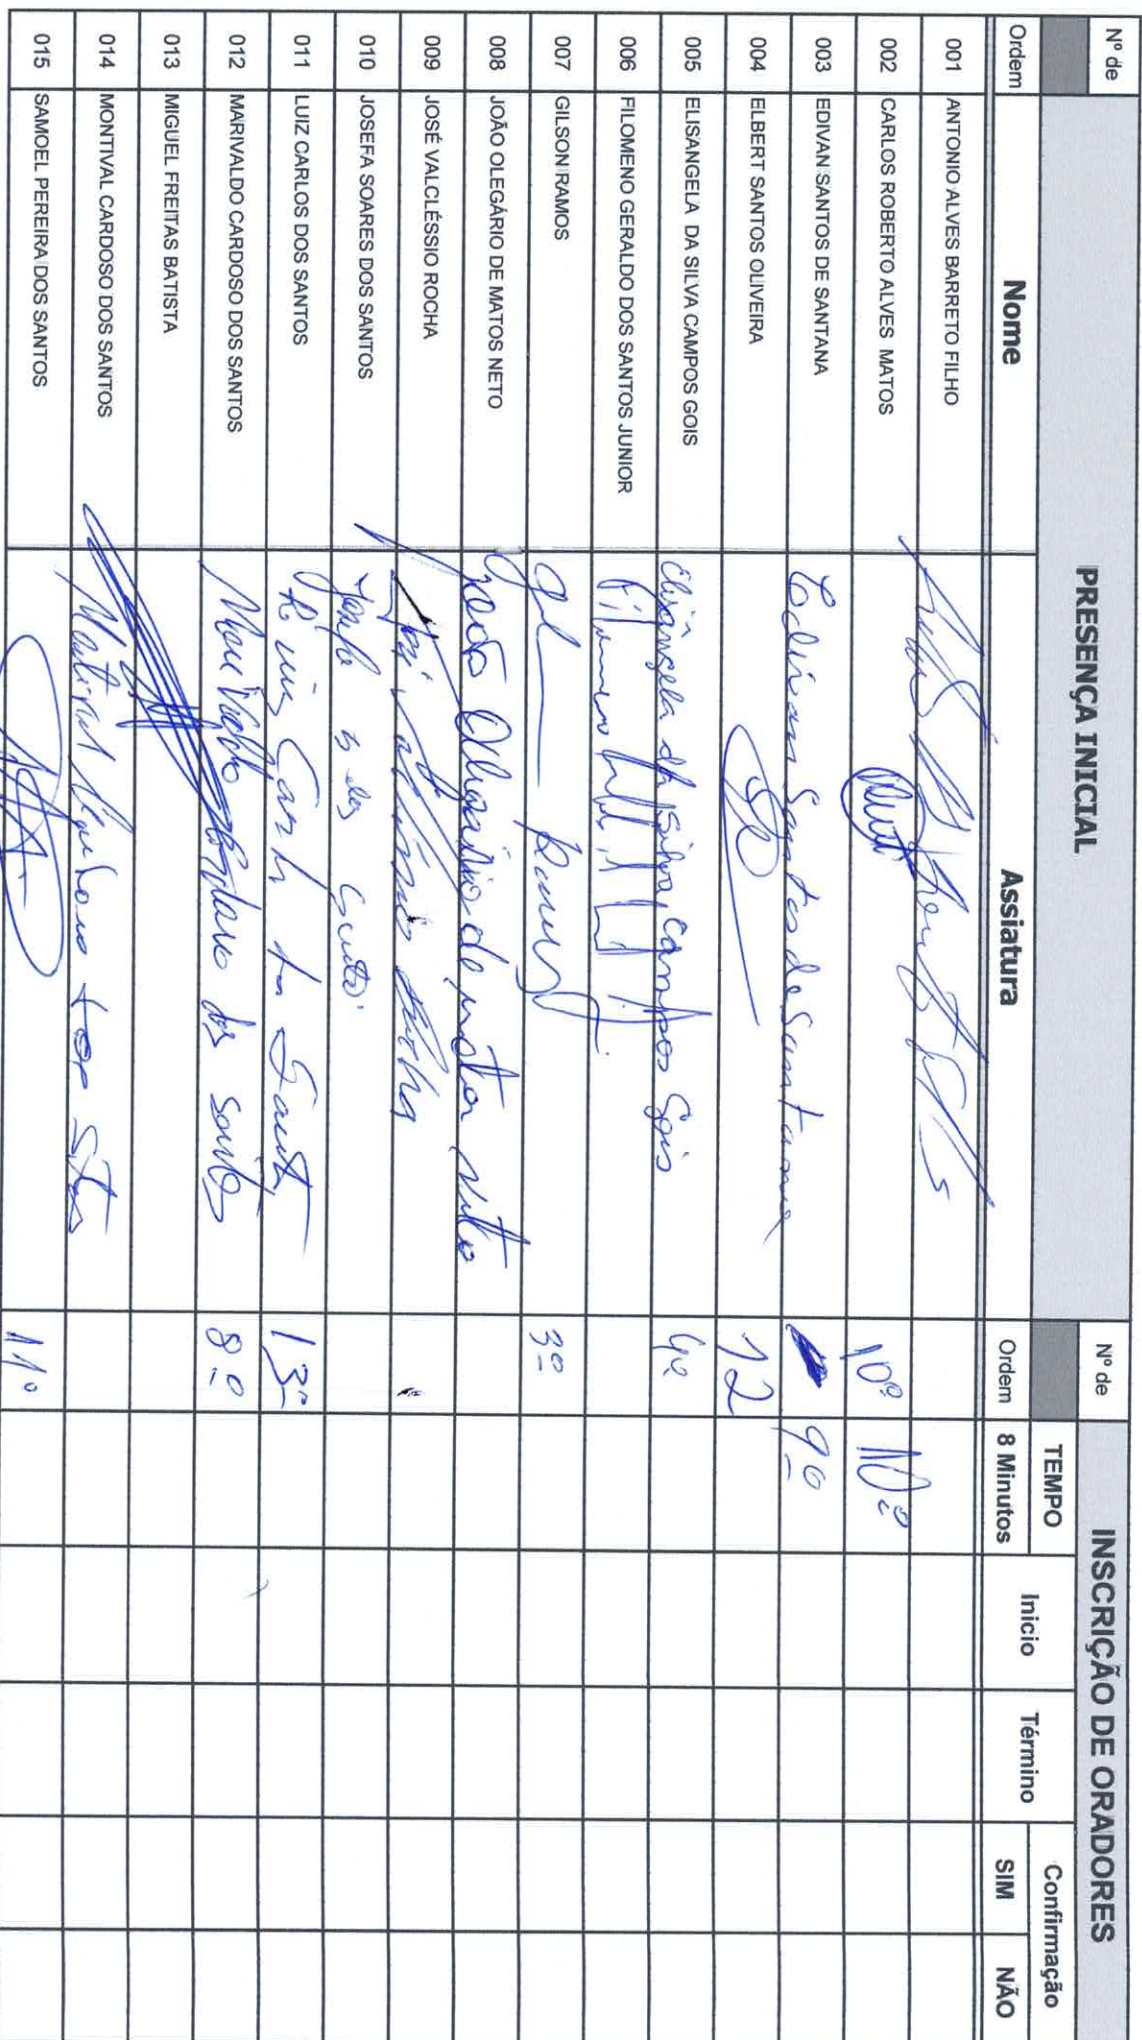 Nº de PRESENÇA INICIAL Nº de INSCRIÇÃO DE ORADORES
TEMPO Confirmação
Ordem Nome Assiatura Ordem 8 Minutos Inicio Término SIM NÃO
001 ANTONIO ALVES BARRETO FILHO
002 CARLOS ROBERTO ALVES MATOS 10º 10º
003 EDIVAN SANTOS DE SANTANA Edivan Santos de Santana 9º
004 ELBERT SANTOS OLIVEIRA 12
005 ELISANGELA DA SILVA CAMPOS GOIS Elisangela da Silva Campos Gois 4º
006 FILOMENO GERALDO DOS SANTOS JUNIOR
007 GILSON RAMOS 3º
008 JOÃO OLEGÁRIO DE MATOS NETO João Olegário de Matos Neto
009 JOSÉ VALCLÉSSIO ROCHA José Rocha
010 JOSEFA SOARES DOS SANTOS
011 LUIZ CARLOS DOS SANTOS Luiz Carlos dos Santos 13º
012 MARIVALDO CARDOSO DOS SANTOS Marivaldo Cardoso dos Santos 8º
013 MIGUEL FREITAS BATISTA
014 MONTIVAL CARDOSO DOS SANTOS
015 SAMOEL PEREIRA DOS SANTOS 11º